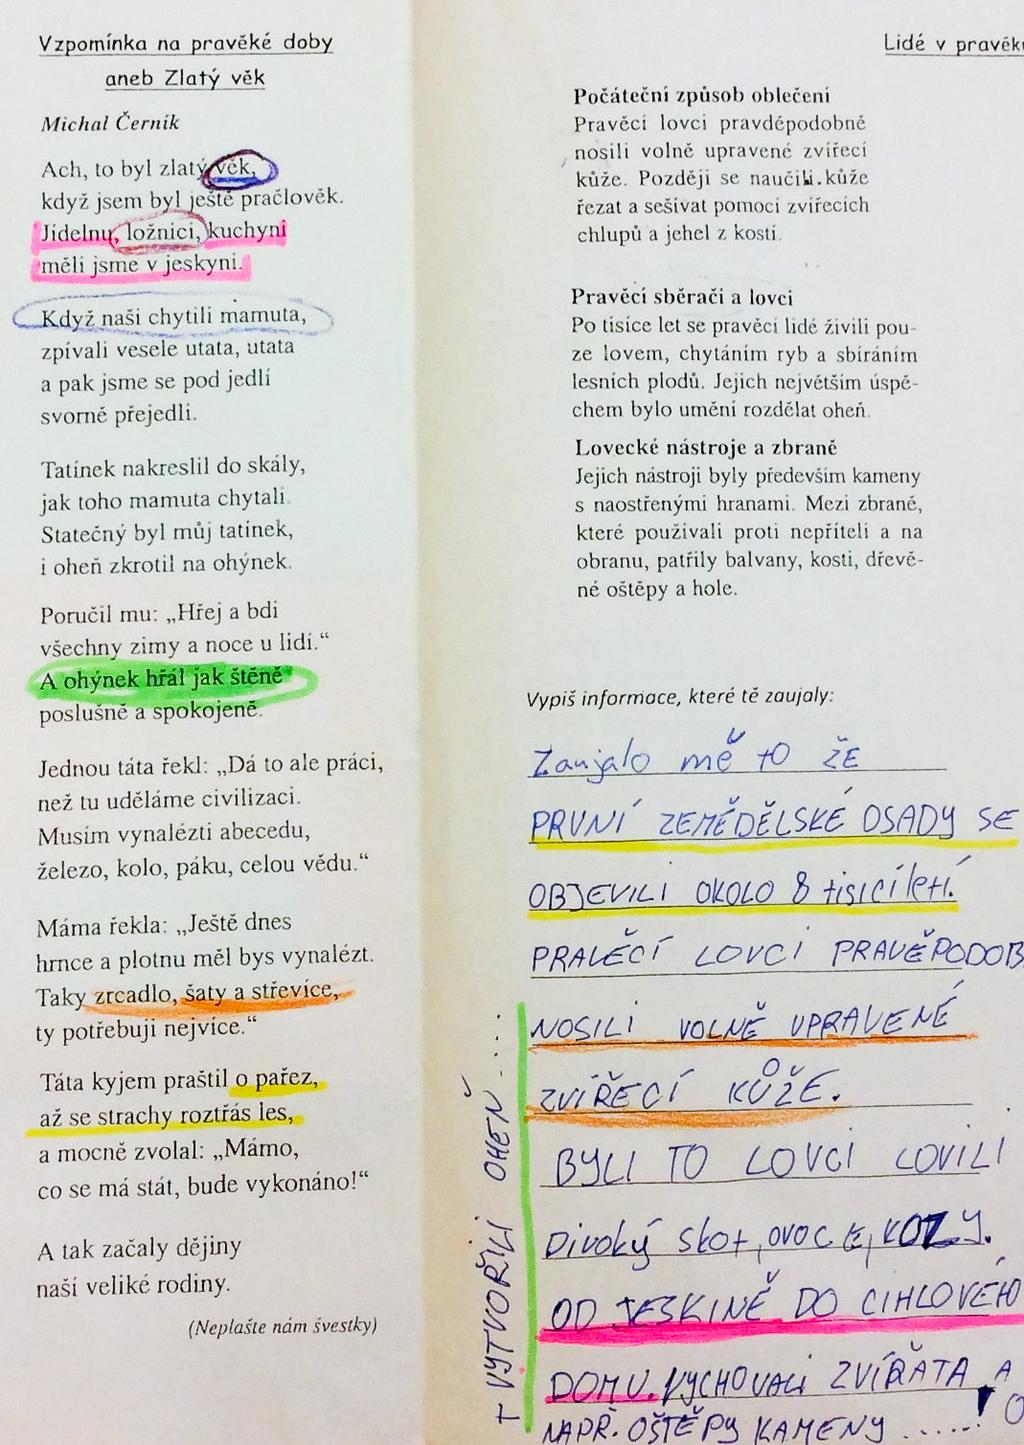 Vzpomínka na pravěké doby
aneb Zlatý věk
Michal Černík
Ach, to byl zlatý věk,
když jsem byl ještě pračlověk.
Jídelnu, ložnici, kuchyni
měli jsme v jeskyni.
Když naši chytili mamuta,
zpívali vesele utata, utata
a pak jsme se pod jedlí
svorně přejedli.
Tatínek nakreslil do skály,
jak toho mamuta chytali.
Statečný byl můj tatínek,
i oheň zkrotil na ohýnek.
Poručil mu: „Hřej a bdi
všechny zimy a noce u lidí.“
A ohýnek hřál jak štěně
poslušně a spokojeně.
Jednou táta řekl: „Dá to ale práci,
než tu uděláme civilizaci.
Musím vynalézti abecedu,
železo, kolo, páku, celou vědu.“
Máma řekla: „Ještě dnes
hrnce a plotnu měl bys vynalézt.
Taky zrcadlo, šaty a střevíce,
ty potřebuji nejvíce.“
Táta kyjem praštil o pařez,
až se strachy roztřás les,
a mocně zvolal: „Mámo,
co se má stát, bude vykonáno!“
A tak začaly dějiny
naší veliké rodiny.
(Neplašte nám švestky)
Lidé v pravěku
Počáteční způsob oblečení
Pravěcí lovci pravděpodobně
nosili volně upravené zvířecí
kůže. Později se naučili kůže
řezat a sešívat pomocí zvířecích
chlupů a jehel z kostí.
Pravěcí sběrači a lovci
Po tisíce let se pravěcí lidé živili pou-
ze lovem, chytáním ryb a sbíráním
lesních plodů. Jejich největším úspě-
chem bylo umění rozdělat oheň.
Lovecké nástroje a zbraně
Jejich nástroji byly především kameny
s naostřenými hranami. Mezi zbraně,
které používali proti nepříteli a na
obranu, patřily balvany, kosti, dřevě-
né oštěpy a hole.
Vypiš informace, které tě zaujaly:
Zaujalo mě to že
PRVNÍ ZEMĚDĚLSKÉ OSADY SE
OBJEVILI OKOLO 8 tisíciletí.
PRAVĚCÍ LOVCI PRAVĚPODOB
NOSILI VOLNĚ UPRAVENÉ
ZVÍŘECÍ KŮŽE.
BYLI TO LOVCI LOVILI
Divoký skot, ovoce, KOZY.
OD JESKINĚ DO CIHLOVÉHO
DOMU. VYCHOVALI ZVÍŘATA A
NAPŘ. OŠTĚPY KAMENY ......!
+ VYTVOŘILI OHEŇ....